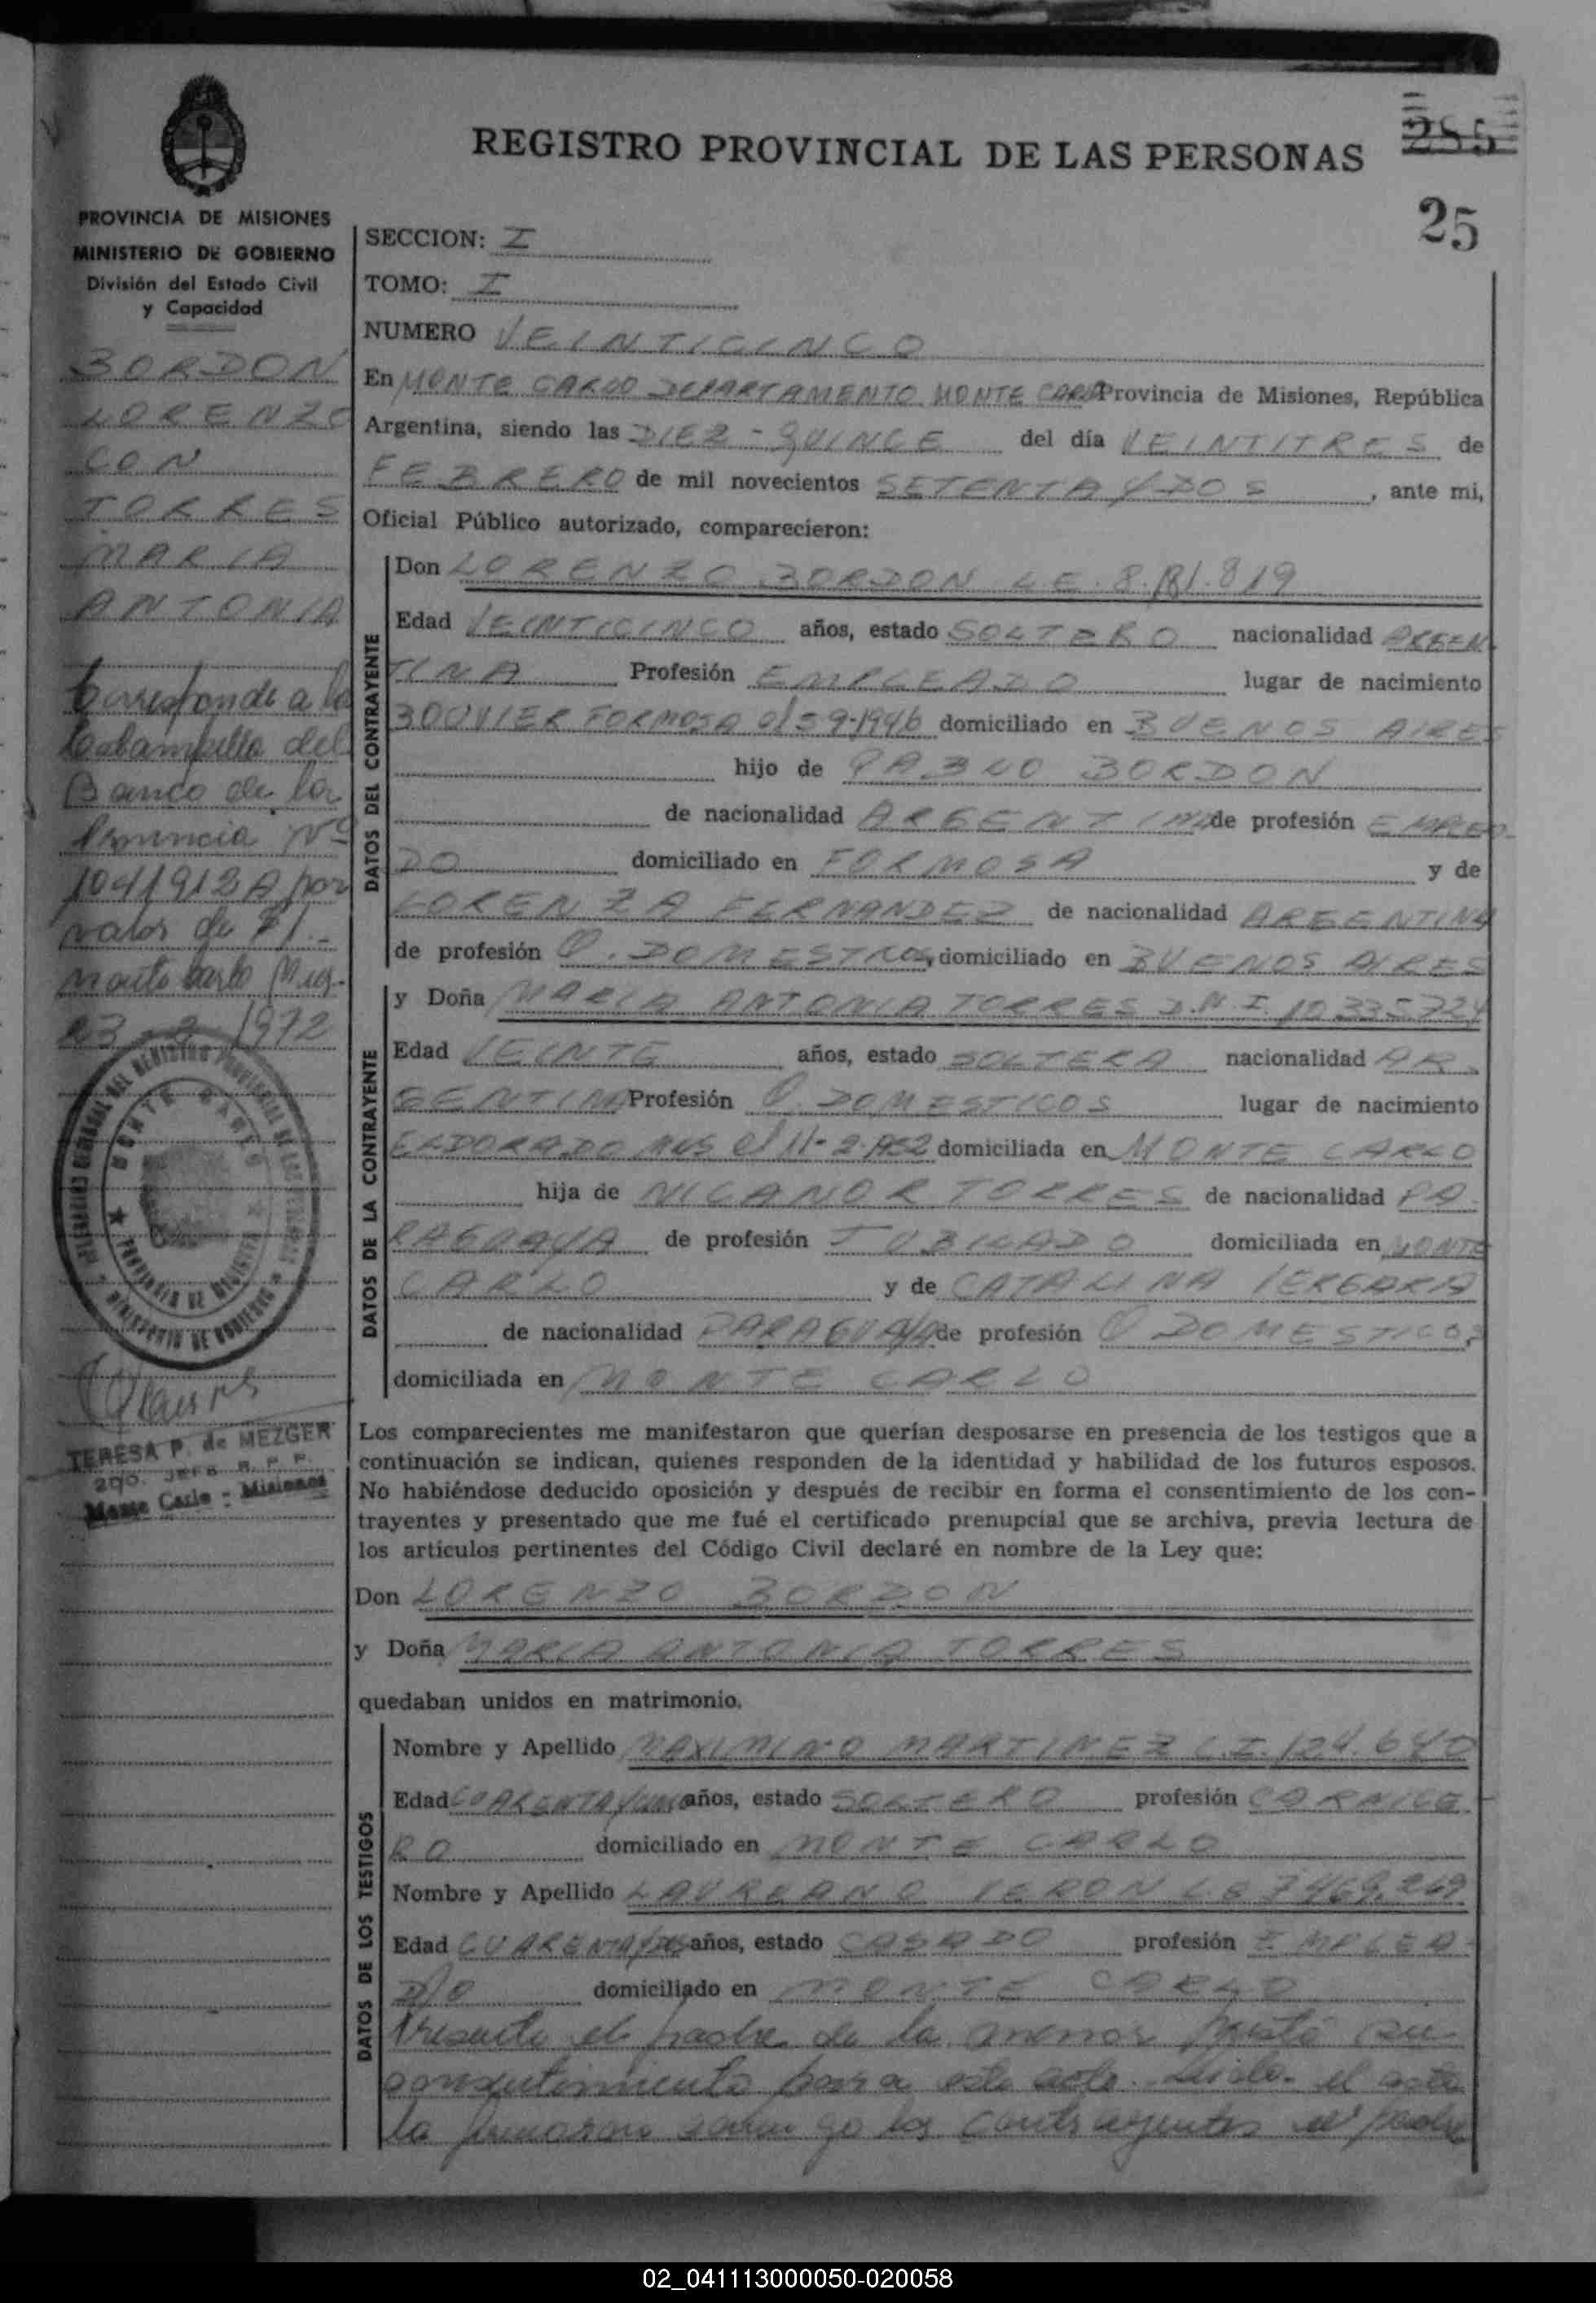 285
REGISTRO PROVINCIAL DE LAS PERSONAS
25
PROVINCIA DE MISIONES
MINISTERIO DE GOBIERNO
División del Estado Civil
y Capacidad
BORDON
LORENZO
CON
TORRES
MARIA
ANTONIA
Corresponde a la
Estampilla del
Banco de la
Provincia Nº
1041912 A por
valor de $1.-
Monte Carlo Mis.
23-2-1972
MONTE CARLO
PROVINCIA DE MISIONES
MINISTERIO DE GOBIERNO
TERESA P. de MEZGER
2do. JEFE R. P. P.
Monte Carlo - Misiones
SECCION: I
TOMO: I
NUMERO VEINTICINCO
En MONTE CARLO DEPARTAMENTO MONTE CARLO Provincia de Misiones, República
Argentina, siendo las DIEZ - QUINCE del día VEINTITRES de
FEBRERO de mil novecientos SETENTA Y DOS, ante mi,
Oficial Público autorizado, comparecieron:
DATOS DEL CONTRAYENTE
Don LORENZO BORDON L.E. 8.181.819
Edad VEINTICINCO años, estado SOLTERO nacionalidad ARGEN
TINA Profesión EMPLEADO lugar de nacimiento
BOUVIER FORMOSA el 5-9-1946 domiciliado en BUENOS AIRES
hijo de PABLO BORDON
de nacionalidad ARGENTINA de profesión EMPLEA-
DO domiciliado en FORMOSA y de
LORENZA FERNANDEZ de nacionalidad ARGENTINA
de profesión Q. DOMESTICOS, domiciliado en BUENOS AIRES
DATOS DE LA CONTRAYENTE
y Doña MARIA ANTONIA TORRES D.N.I. 10.335.724
Edad VEINTE años, estado SOLTERA nacionalidad AR-
GENTINA Profesión Q. DOMESTICOS lugar de nacimiento
ELDORADO MNS el 11-2-1952 domiciliada en MONTE CARLO
hija de NICANOR TORRES de nacionalidad PA-
RAGUAYA de profesión JUBILADO domiciliada en MONTE
CARLO y de CATALINA VERGARA
de nacionalidad PARAGUAYA de profesión Q DOMESTICOS,
domiciliada en MONTE CARLO
Los comparecientes me manifestaron que querían desposarse en presencia de los testigos que a
continuación se indican, quienes responden de la identidad y habilidad de los futuros esposos.
No habiéndose deducido oposición y después de recibir en forma el consentimiento de los con-
trayentes y presentado que me fué el certificado prenupcial que se archiva, previa lectura de
los artículos pertinentes del Código Civil declaré en nombre de la Ley que:
Don LORENZO BORDON
y Doña MARIA ANTONIA TORRES
quedaban unidos en matrimonio.
DATOS DE LOS TESTIGOS
Nombre y Apellido MAXIMINO MARTINEZ C.I. 124.640
Edad CUARENTA Y UNO años, estado SOLTERO profesión CARNICE-
RO domiciliado en MONTE CARLO
Nombre y Apellido LAUREANO VERON L E 7469.269
Edad CUARENTA Y DOS años, estado CASADO profesión EMPLEA-
DO domiciliado en MONTE CARLO
Presente el padre de la menor prestó su
consentimiento para este acto. Leída el acta
la firmaron conmigo los contrayentes el padre
02_041113000050-020058